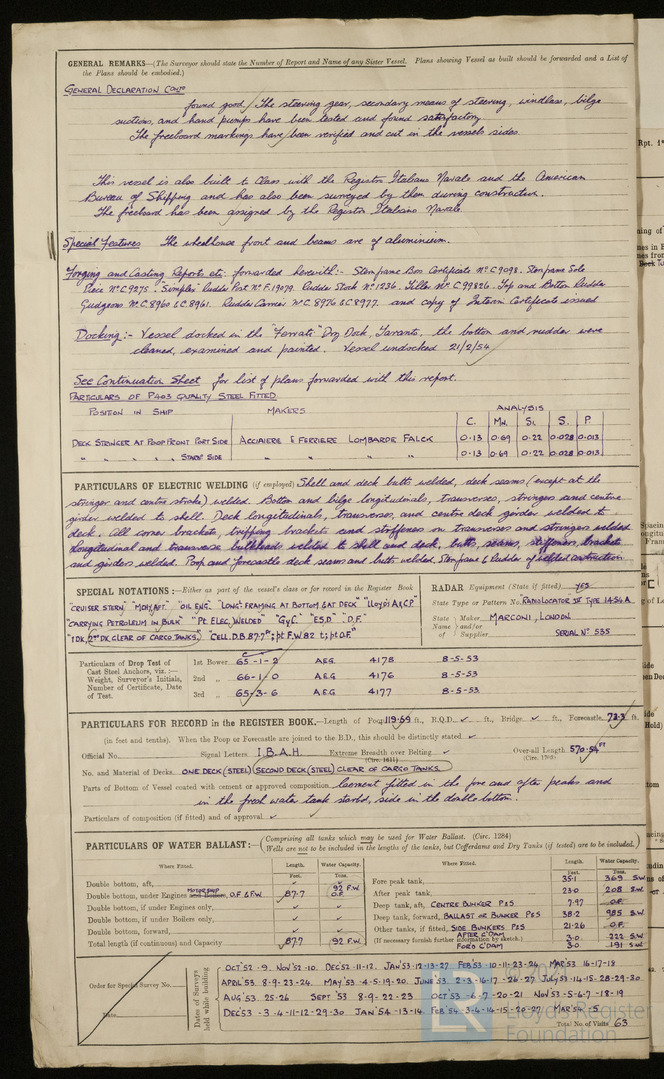 GENERAL REMARKS—(The Surveyor should state the Number of Report and Name of any Sister Vessel. Plans showing Vessel as built should be forwarded and a List of
the Plans should be embodied.)
GENERAL DECLARATION CONTD
found good. The steering gear, secondary means of steering, windlass, bilge
suctions, and hand pumps have been tested and found satisfactory
The freeboard markings have been verified and cut in the vessels sides
This vessel is also built to Class with the Registro Italiano Navale and the American
Bureau of Shipping and has also been surveyed by them during construction.
The freeboard has been assigned by the Registro Italiano Navale.
Special Features The wheelhouse front and beams are of aluminium.
Forging and Casting Reports etc. forwarded herewith:- Sternframe Boss Certificate No. C.9098. Sternframe Sole
Piece No. C.9275. "Simplex" Rudder Post No. F.19079. Rudder Stock No. 1236. Tiller No. C.99826. Top and Bottom Rudder
Gudgeons No. C.8960 & C.8961. Rudder Carrier No. C.8976 & C8977. and copy of Interim Certificate issued
Docking:- Vessel docked in the "Ferrati" Dry Dock, Taranto, the bottom and rudder were
cleaned, examined and painted. Vessel undocked 21/2/54
See Continuation Sheet for list of plans forwarded with this report.
PARTICULARS OF P403 QUALITY STEEL FITTED.
POSITION IN SHIP MAKERS ANALYSIS
C. MN. SI. S. P.
DECK STRINGER AT POOP FRONT PORT SIDE ACCIAIERE E FERRIERE LOMBARDE FALCK 0·13 0·69 0·22 0·028 0·013
" " " " " STARBD SIDE " " " " 0·13 0·69 0·22 0·028 0·013
PARTICULARS OF ELECTRIC WELDING (if employed) Shell and deck butts welded, deck seams (except at the
stringer and centre strake) welded. Bottom and bilge longitudinals, transverses, stringers and centre
girder welded to shell. Deck longitudinals, transverses, and centre deck girder welded to
deck. All corner brackets, tripping brackets and stiffeners on transverses and stringers welded
Longitudinal and transverse bulkhead welded to shell and deck, butts, seams, stiffeners, brackets
and girders welded. Poop and forecastle deck seams and butts welded. Sternframe & Rudder of welded construction
SPECIAL NOTATIONS:—Either as part of the vessel's class or for record in the Register Book
"CRUISER STERN," "MCHY.AFT." "OIL ENG." "LONGL FRAMING AT BOTTOM & AT DECK" "LLOYD'S A & C.P."
"CARRYING PETROLEUM IN BULK" "Pt ELEC. WELDED" "Gy C." "E.S.D" "D.F."
"1 DK, 2ND DK CLEAR OF CARGO TANKS," "CELL. D.B 87·7'; pt F.W. 82 t; pt O.F."
RADAR Equipment (State if fitted) YES
State Type or Pattern No. "RADIOLOCATOR IV TYPE 1454A
State Name and/or of Maker Supplier MARCONI, LONDON
SERIAL No 535
Particulars of Drop Test of
Cast Steel Anchors, viz.:—
Weight, Surveyor's Initials,
Number of Certificate, Date
of Test.
1st Bower 65-1-2 A.E.G. 4175 8-5-53
2nd „ 66-1-0 A.E.G 4176 8-5-53
3rd „ 65-3-6 A.E.G 4177 8-5-53
PARTICULARS FOR RECORD in the REGISTER BOOK.—Length of Poop 119·69 ft., R.Q.D. ✓ ft., Bridge ✓ ft., Forecastle, 73·3 ft.
(in feet and tenths). When the Poop or Forecastle are joined to the B.D., this should be distinctly stated ✓
Official No. Signal Letters I.B.A.H. Extreme Breadth over Belting ✓ Over-all Length 570·54 FT
(Circ. 1611) (Circ. 1703)
No. and Material of Decks ONE DECK (STEEL) SECOND DECK (STEEL) CLEAR OF CARGO TANKS
Parts of Bottom of Vessel coated with cement or approved composition Cement fitted in the fore and after peaks and
in the fresh water tank starbd, side in the double bottom.
Particulars of composition (if fitted) and of approval ✓
PARTICULARS OF WATER BALLAST:—(Comprising all tanks which may be used for Water Ballast. (Circ. 1284)
Wells are not to be included in the lengths of the tanks, but Cofferdams and Dry Tanks (if tested) are to be included.)
Where Fitted. Length. Water Capacity.
Feet. Tons.
Double bottom, aft, ✓ ✓
Double bottom, under Engines MOTORSHIP O.F & F.W. 87·7 92 F.W. O.F.
Double bottom, if under Engines only, ✓ ✓
Double bottom, if under Boilers only, ✓ ✓
Double bottom, forward, ✓ ✓
Total length (if continuous) and Capacity 87·7 92 F.W.
Where Fitted. Length. Water Capacity.
Feet. Tons.
Fore peak tank, 35·1 369 S.W.
After peak tank, 23·0 208 S.W.
Deep tank, aft, CENTRE BUNKER P&S 7·97 O.F.
Deep tank, forward, BALLAST OR BUNKER P&S 38·2 985 S.W.
Other tanks, if fitted, SIDE BUNKERS P&S 21·26 O.F.
(If necessary furnish further information by sketch.) AFTER C'DAM 3·0 222 S.W.
FOR'D C'DAM 3·0 191 S.W.
Order for Special Survey No.
Date
Dates of Surveys held while building
OCT'52-9. NOV'52-10. DEC'52-11-12. JAN'53-12-13-27 FEB'53-10-11-23-24 MAR'53 16-17-18
APRIL'53 8-9-23-24. MAY'53-4-5-19-20. JUNE'53 2-3-16-17-26-27 JULY'53-14-15-28-29-30
AUG'53. 25-26 SEPT'53 8-9-22-23 OCT'53-6-7-20-21 NOV'53-5-6-7-18-19
DEC'53-3-4-11-12-29-30 JAN'54-13-14. FEB'54-3-4-14-15-20-27 MAR'54-5
Total No. of Visits 63
Lloyd's Register
Foundation